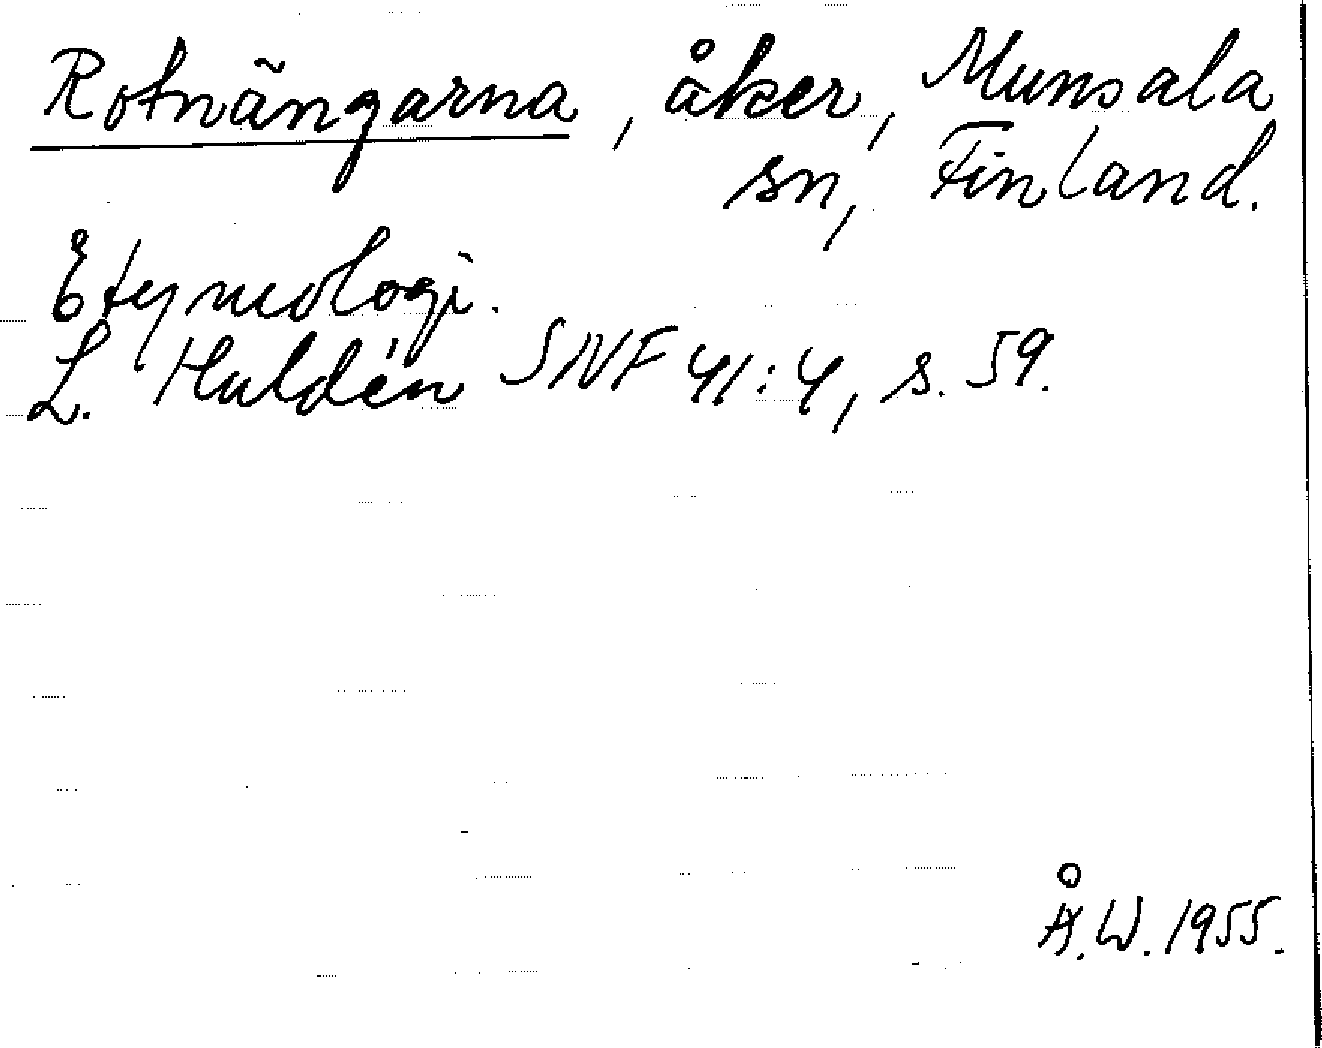 Rotnängarna, åker, Munsala
sn, Finland.
Etymologi.
L. Huldén SNF 41:4, s. 59.
Å.W. 1955.